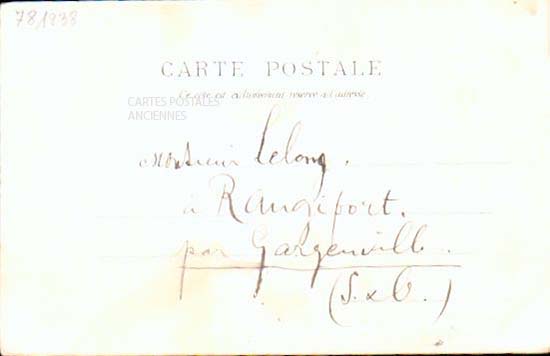 781838
CARTE POSTALE
Ce côté est exclusivement réservé à l'adresse.
CARTES POSTALES
ANCIENNES
Monsieur Lelong.
à Rangiport.
par Gargenville.
(S. & O.)